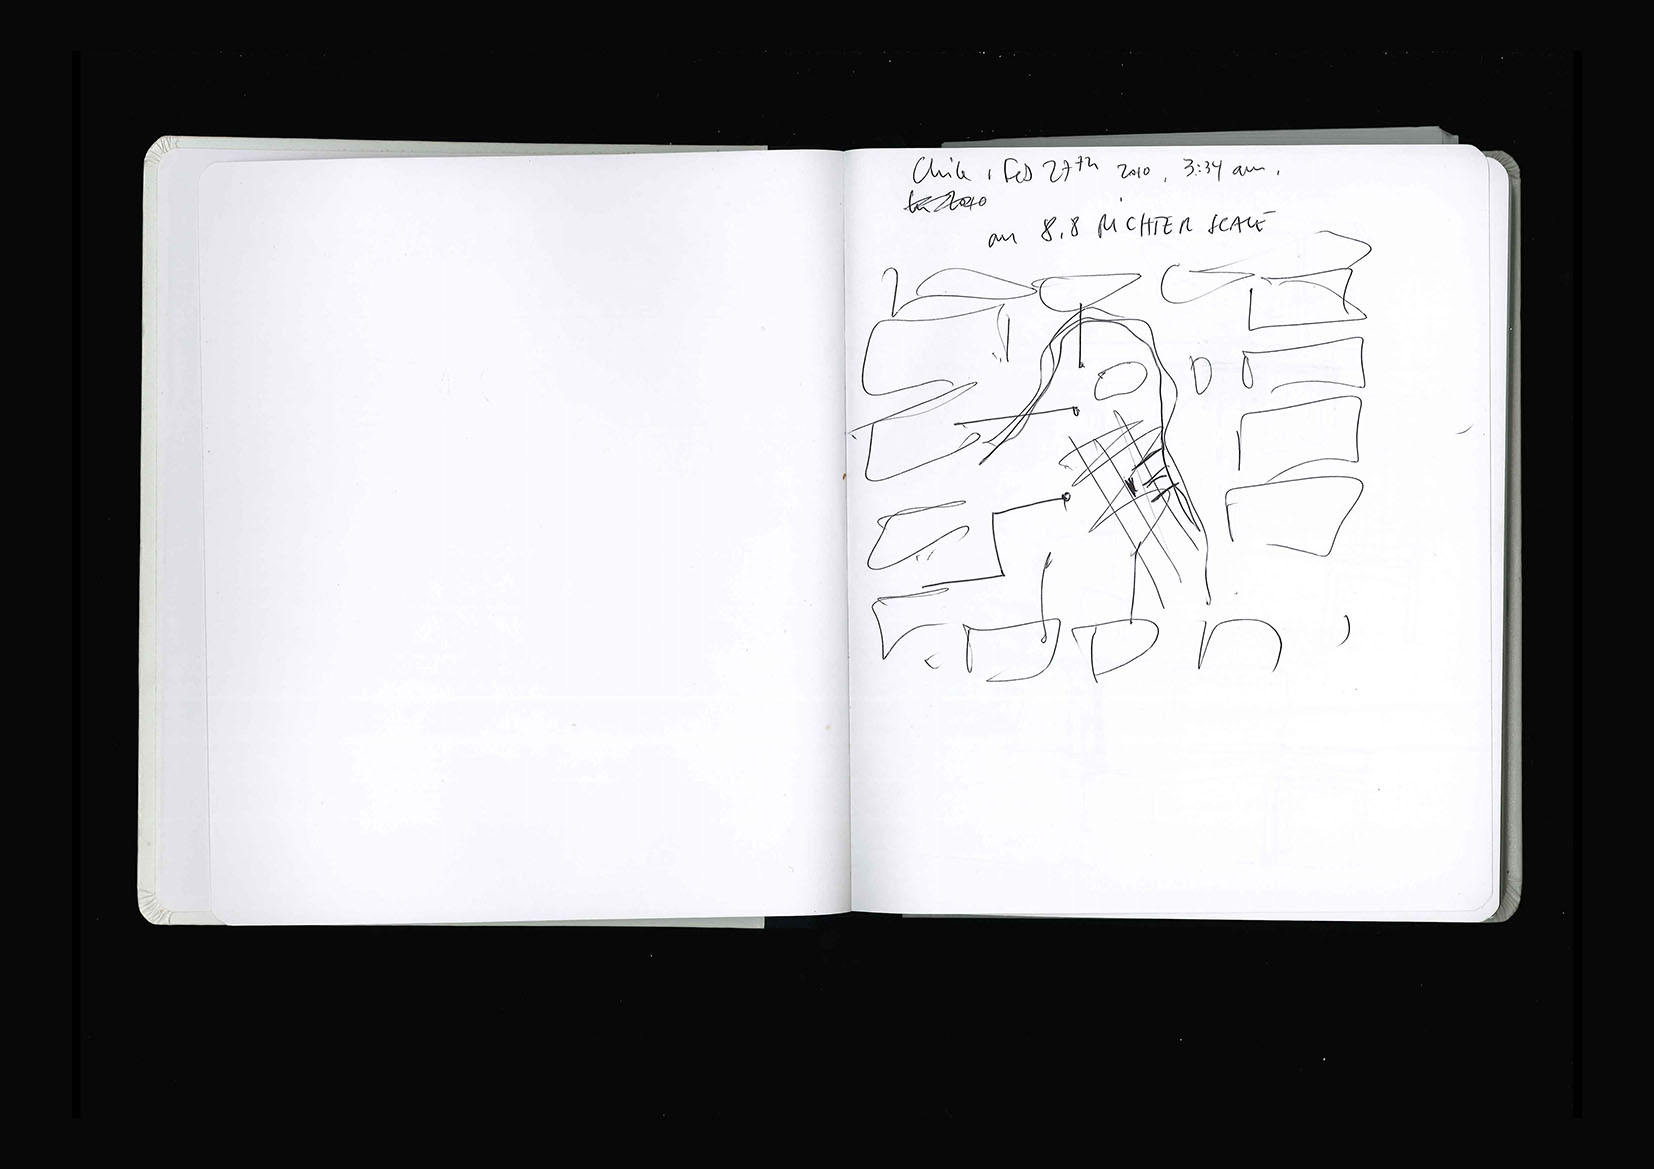 Chile, Feb 27th 2010, 3:34 am.
2010
an 8.8 RICHTER SCALE